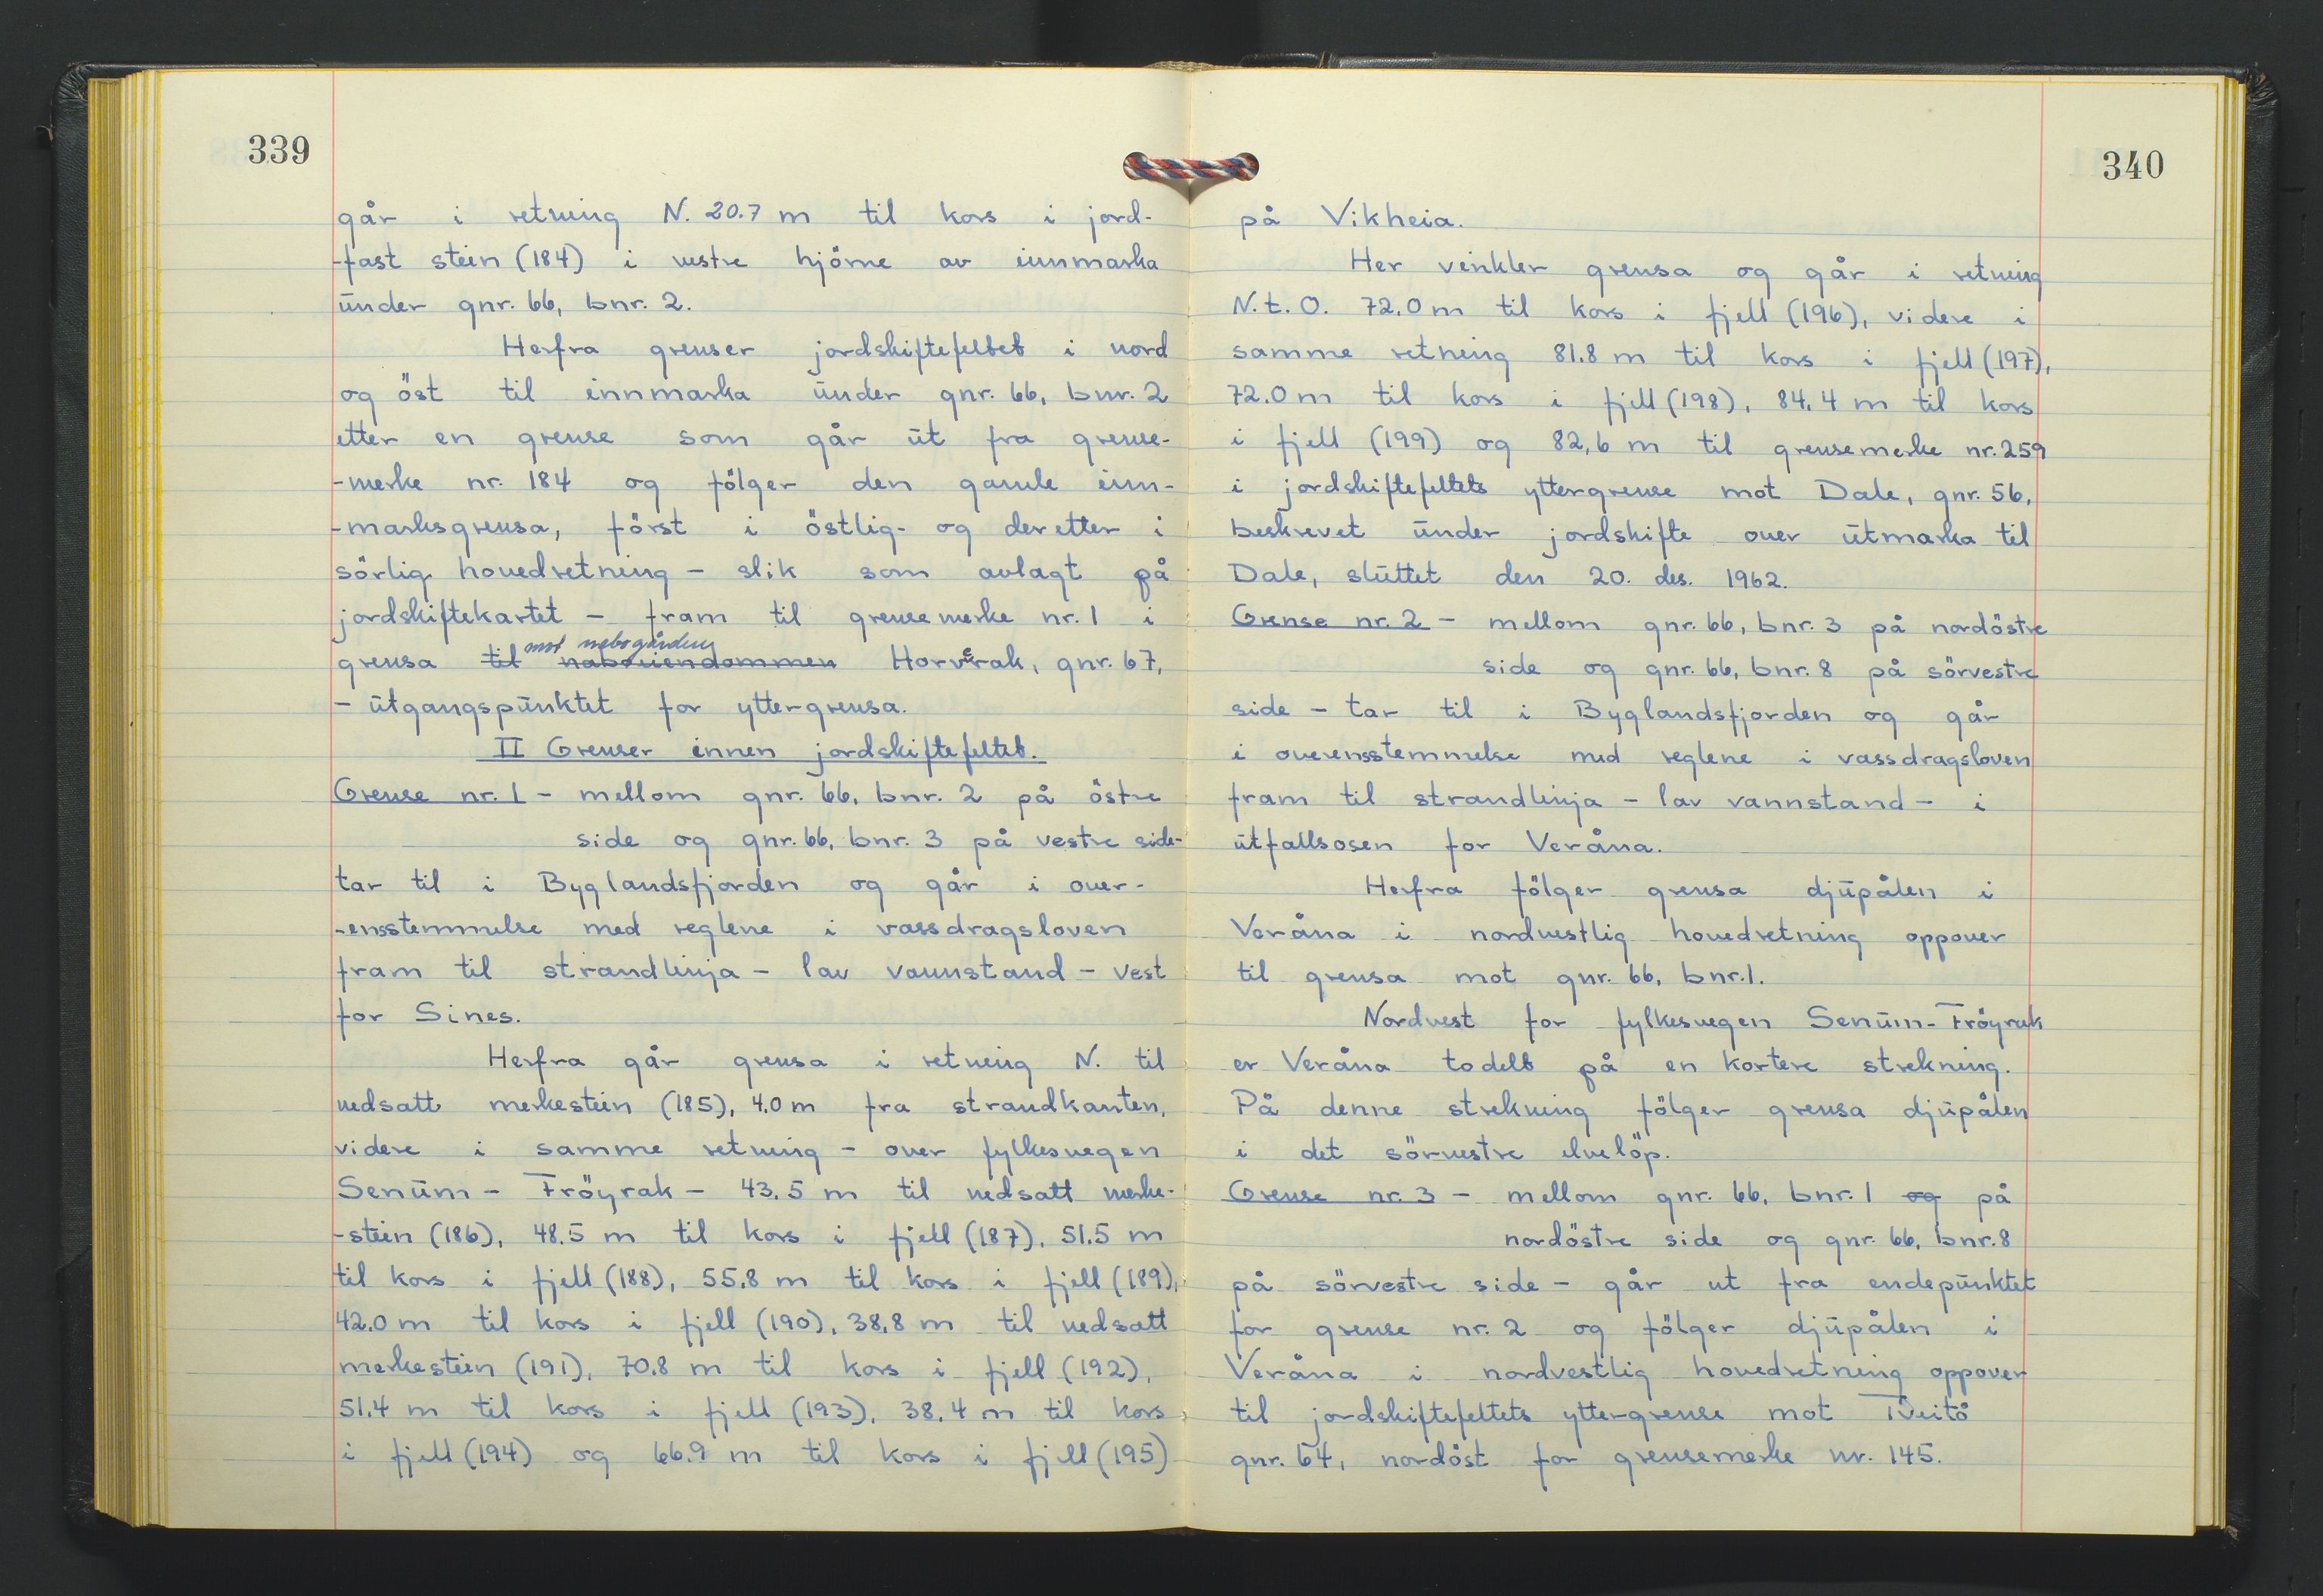 339
går i retning N. 20.7 m til kors i jord-
-fast stein (184) i vestre hjörne av innmarka
under gnr. 66, bnr. 2.
Herfra grenser jordskiftefeltet i nord
og öst til innmarka under gnr. 66, bnr. 2
etter en grense som går ut fra grense-
-merke nr. 184 og fölger den gamle inn-
-marksgrensa, först i östlig- og deretter i
sörlig hovedretning - slik som avlagt på
jordskiftekartet - fram til grensemerke nr. 1 i
mot nabogården
grensa til naboeiendommen Horverak, gnr. 67,
- utgangspunktet for yttergrensa.
II Grenser innen jordskiftefeltet.
Grense nr. 1 - mellom gnr. 66, bnr. 2 på östre
side og gnr. 66, bnr. 3 på vestre side-
tar til i Byglandsfjorden og går i over-
-ensstemmelse med reglene i vassdragsloven
fram til strandlinja - lav vannstand - vest
for Sines.
Herfra går grensa i retning N. til
nedsatt merkestein (185), 4.0 m fra strandkanten,
videre i samme retning - over fylkesvegen
Senum - Fröyrak - 43.5 m til nedsatt merke-
-stein (186), 48.5 m til kors i fjell (187), 51.5 m
til kors i fjell (188), 55.8 m til kors i fjell (189),
42.0 m til kors i fjell (190), 38.8 m til nedsatt
merkestein (191), 70.8 m til kors i fjell (192),
51.4 m til kors i fjell (193), 38.4 m til kors
i fjell (194) og 66.9 m til kors i fjell (195)
340
på Vikheia.
Her vinkler grensa og går i retning
N.t.O. 72.0 m til kors i fjell (196), videre i
samme retning 81.8 m til kors i fjell (197),
72.0 m til kors i fjell (198), 84.4 m til kors
i fjell (199) og 82,6 m til grensemerke nr. 259
i jordskiftefeltets yttergrense mot Dale, gnr. 56,
beskrevet under jordskifte over utmarka til
Dale, sluttet den 20. des. 1962.
Grense nr. 2 - mellom gnr. 66, bnr. 3 på nordöstre
side og gnr. 66, bnr. 8 på sörvestre
side - tar til i Byglandsfjorden og går
i overensstemmelse med reglene i vassdragsloven
fram til strandlinja - lav vannstand - i
utfallsosen for Veråna.
Herfra fölger grensa djupålen i
Veråna i nordvestlig hovedretning oppover
til grensa mot gnr. 66, bnr. 1.
Nordvest for fylkesvegen Senum-Fröyrak
er Veråna todelt på en kortere strekning.
På denne strekning fölger grensa djupålen
i det sörvestre elvelöp.
Grense nr. 3 - mellom gnr. 66, bnr. 1 og på
nordöstre side og gnr. 66, bnr. 8
på sörvestre side - går ut fra endepunktet
for grense nr. 2 og fölger djupålen i
Veråna i nordvestlig hovedretning oppover
til jordskiftefeltets yttergrense mot Tveitå
gnr. 64, nordöst for grensemerke nr. 145.